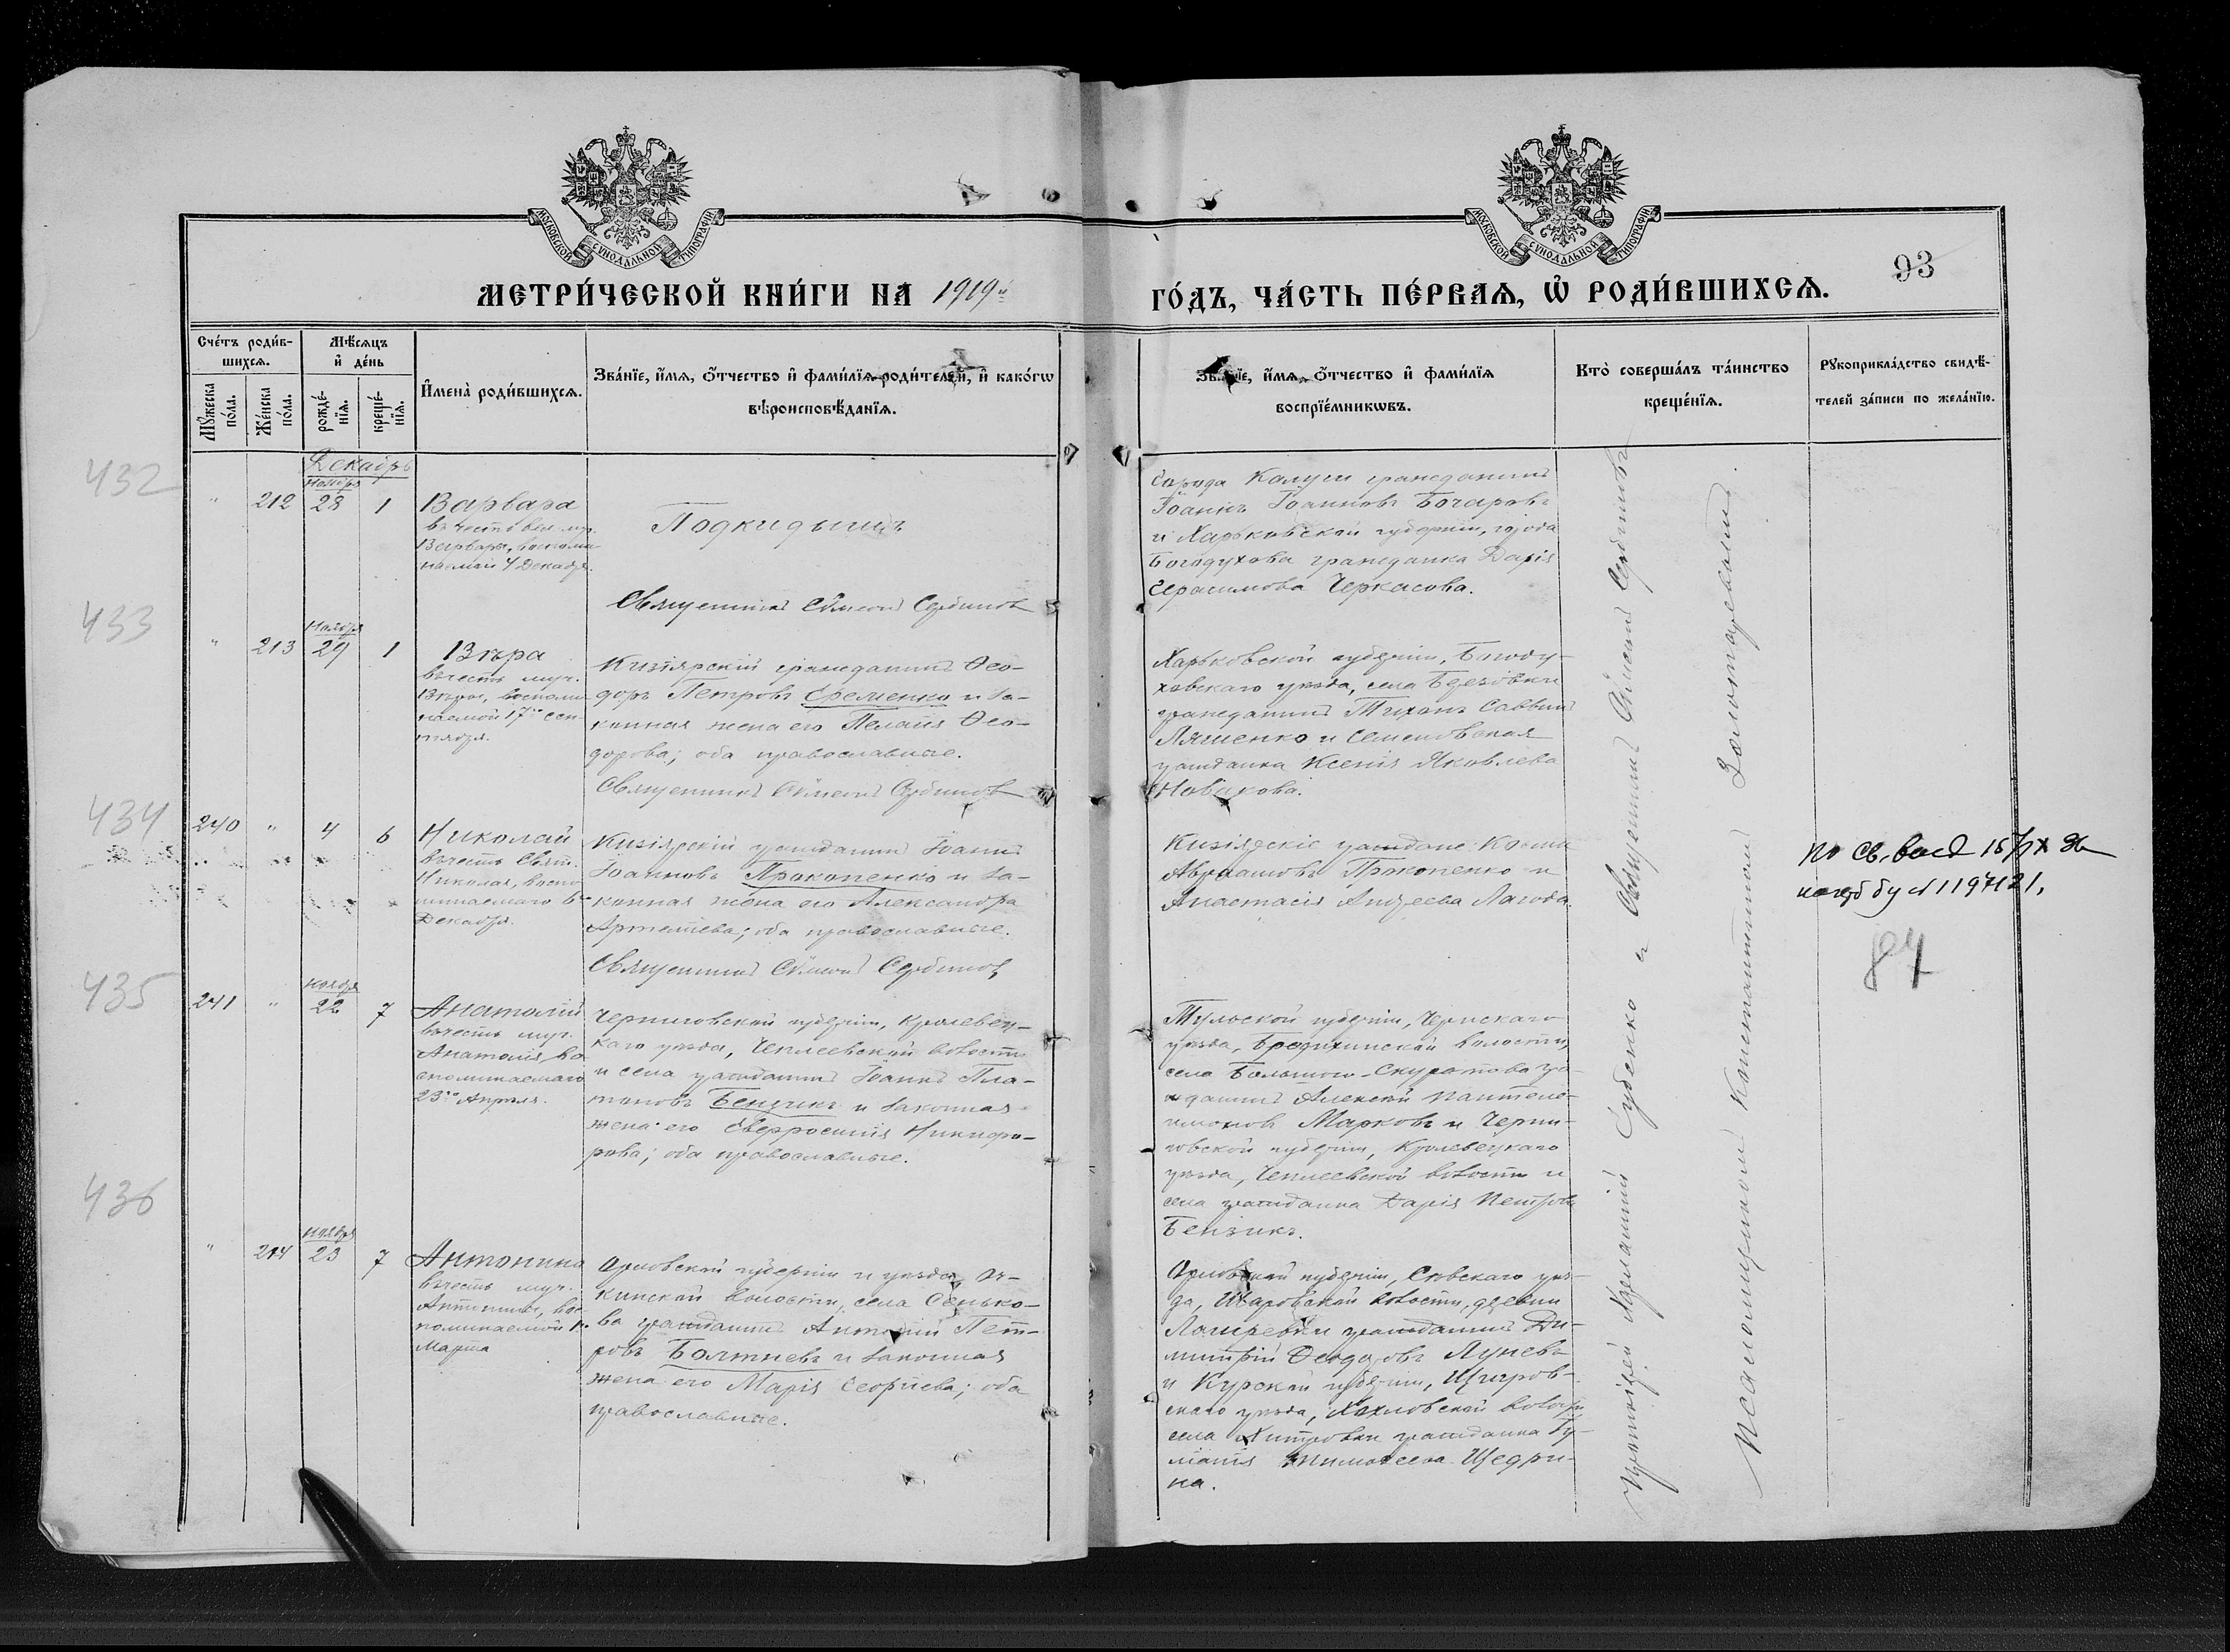 МОСКОВСКОЙ СУНОДАЛЬНОЙ ТИПОГРАФІИ
МОСКОВСКОЙ СУНОДАЛЬНОЙ ТИПОГРАФІИ
93
МЕТРИ́ЧЕСКОЙ КНИ́ГИ НА 1919й
ГО́ДЪ, ЧА́СТЬ ПЕ́РВАѦ, Ѡ҆ РОДИ́ВШИХСѦ.
Сче́тъ роди́в-
шихсѧ.
Мꙋжеска по́ла.
Же́нска по́ла.
Мѣ́сѧцъ
и҆ де́нь
рожде́-
нїѧ.
креще́-
нїѧ.
И҆мена̀ роди́вшихсѧ.
Зва́нїе, и҆́мѧ, ѻ҆́тчество и҆ фами́лїѧ роди́телей, и҆ како́гѡ
вѣроисповѣ́данїѧ.
Зва́нїе, и҆́мѧ, ѻ҆́тчество и҆ фами́лїѧ
воспрїе́мникѡвъ.
Кто̀ соверша́лъ та́инство
креще́нїѧ.
Рꙋкоприкла́дство свидѣ́-
телей за́писи по жела́нїю.
432
Декабрь
Ноября
" 212 28 1
Варвара
въ честь вел. муч.
Варвары, воспоми-
наемой 4 Декабр.
Подкидышъ
Священникъ Сѵмеонъ Сербиновъ
Города Калуги гражданинъ
Іоаннъ Іоанновъ Бочаровъ
и Харьковской губерніи, города
Богодухова гражданка Дарія
Герасимова Черкасова.
433
Ноября
" 213 29 1
Вѣра
въ честь муч.
Вѣры, воспоми-
наемой 17го Сен-
тября.
Кизіярскій гражданинъ Ѳео-
доръ Петровъ Еременко и за-
конная жена его Пелагія Ѳео-
дорова; оба православные.
Священникъ Сѵмеонъ Сербиновъ
Харьковской губерніи, Богоду-
ховскаго уѣзда, села Березовки
гражданинъ Тихонъ Саввинъ
Ляшенко и Семеновская
гражданка Ксенія Яковлева
Новакова.
434
240 " 4 6
Николай
въ честь Свят.
Николая, воспо-
минаемаго 6го
Декабря.
Кизіярскій гражданинъ Іоаннъ
Іоанновъ Прокопенко и за-
конная жена его Александра
Артемiева; оба православные.
Священникъ Сѵмеонъ Сербиновъ
Кизіярскіе граждане: Косма
Авраамовъ Прокопенко и
Анастасія Андреева Лагода.
84
435
Ноября
241 " 22 7
Анатолій
въ честь муч.
Анатолія, во-
споминаемаго
23го Апрѣля.
Черниговской губерніи, Кролевец-
каго уѣзда, Чеплеевской волости
и села гражданинъ Іоаннъ Пла-
тоновъ Бензикъ и законная
жена его Евфросинія Никифо-
рова; оба православные.
Тульской губерніи, Чернскаго
уѣзда, Бредихинской волости,
села Большого-Скуратова гра-
жданинъ Алексѣй Пантеле-
имоновъ Марковъ и Черни-
говской губерніи, Кролевецкаго
уѣзда, Чеплеевской волости и
села гражданка Дарія Петрова
Бензикъ.
436
Ноября
" 214 23 7
Антонина
въ честь муч.
Антонины, вос-
поминаемой 1го
Марта
Орловской губерніи и уѣзда,
волости, села Сенько-
ва гражданинъ Антоній Пет-
ровъ Болтневъ и законная
жена его Марія Георгіева; оба
православные.
Орловской губерніи, Сѣвскаго уѣз-
да, волости, деревни
гражданинъ Ди-
митрій Ѳеодоровъ Луневъ
и Курской губерніи, Щигров-
скаго уѣзда, Хохловской волости,
села гражданка
Тимоѳеева Щедри-
на.
Протоіерей Судженко и Священникъ Сѵмеонъ Сербиновъ
Псаломщикъ Константинъ